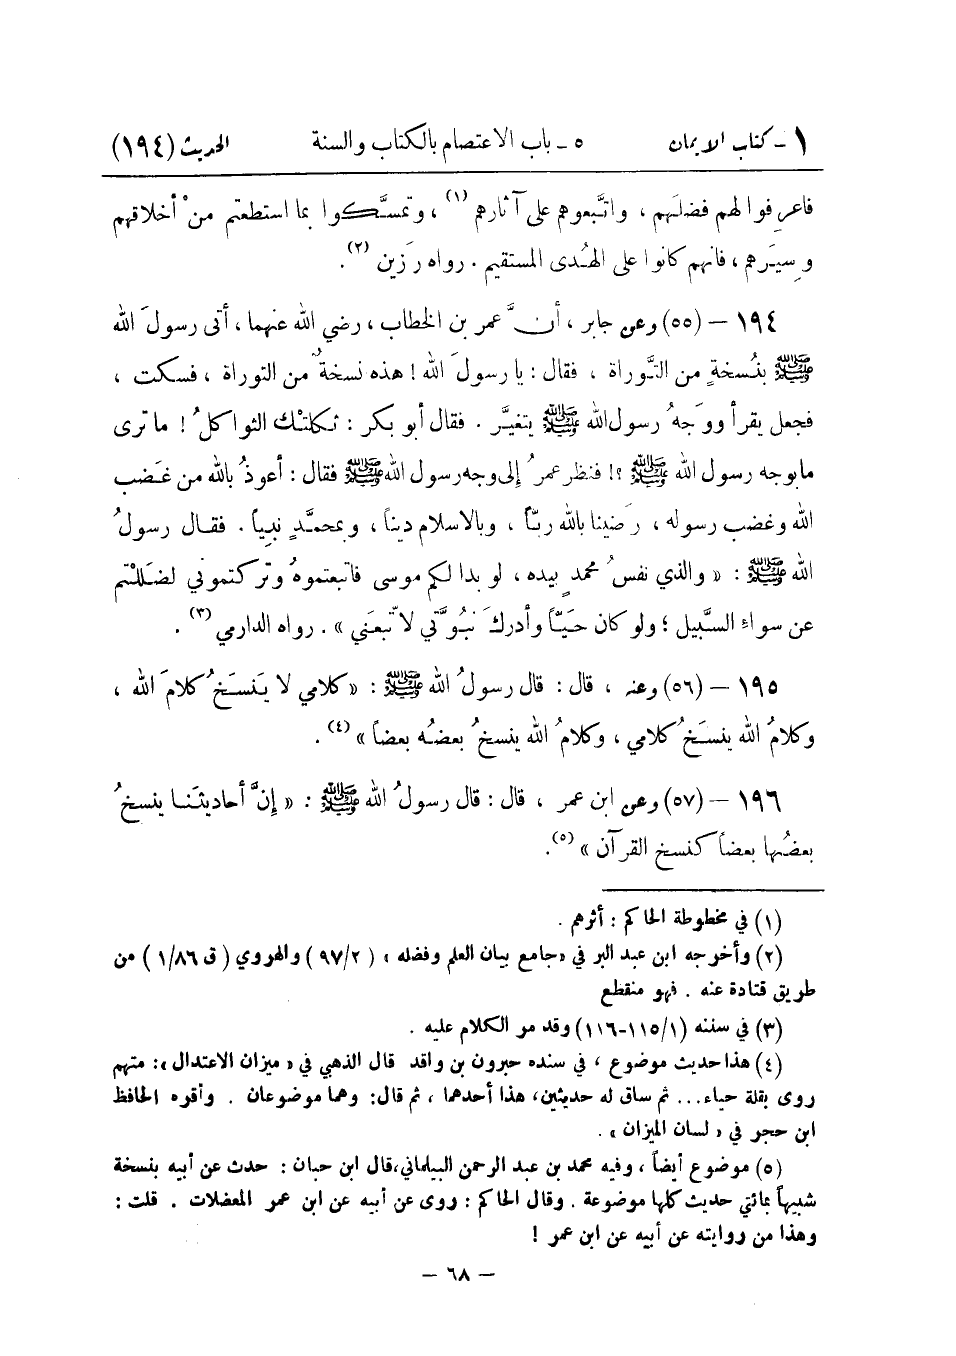 ١ - كتاب الايمان ٥ - باب الاعتصام بالكتاب والسنة الحديث (١٩٤)
فاعرفوا لهم فضلَهم ، واتَّبعوهم على آثارهم (١) ، وتمسَّكوا بما استطعتم منْ أخلاقهم
وسِيَرهم ، فانهم كانوا على الهُدى المستقيم . رواه رَزين (٢) .
١٩٤ — (٥٥) وعن جابر ، أنَّ عمر بن الخطاب ، رضي الله عنهما ، أتى رسولَ الله
ﷺ بنُسخةٍ من التَّوراة ، فقال : يا رسولَ الله ! هذه نسخةٌ من التوراة ، فسكت ،
فجعل يقرأ ووَجهُ رسول الله ﷺ يتغيَّر . فقال أبو بكر : ثكلتْك الثواكلُ ! ما ترى
ما بوجه رسول الله ﷺ ؟! فنظر عمرُ إلى وجه رسول الله ﷺ فقال : أعوذُ بالله من غَضب
الله وغضب رسوله ، رَضينا بالله ربّاً ، وبالاسلام ديناً ، وبمحمَّدٍ نبياً . فقال رسولُ
الله ﷺ : « والذي نفسُ محمدٍ بيده ، لو بدا لكم موسى فاتبعتموهُ وتركتموني لضَللْتم
عن سواءِ السَّبيل ؛ ولو كان حيّاً وأدركَ نبُوَّتي لاتَّبعَني » . رواه الدارمي (٣) .
١٩٥ — (٥٦) وعنه ، قال : قال رسولُ الله ﷺ : « كلامي لا يَنسَخُ كلامَ الله ،
وكلامُ الله ينسَخُ كلامي ، وكلامُ الله ينسخُ بعضُه بعضاً » (٤) .
١٩٦ — (٥٧) وعن ابن عمر ، قال : قال رسولُ الله ﷺ : « إنَّ أحاديثَنا ينسخُ
بعضُها بعضاً كنسخ القرآن » (٥) .
(١) في مخطوطة الحاكم : أثرهم .
(٢) وأخرجه ابن عبد البر في «جامع بيان العلم وفضله» (٩٧/٢) والهروي (ق ١/٨٦) من
طريق قتادة عنه . فهو منقطع
(٣) في سننه (١١٥/١-١١٦) وقد مر الكلام عليه .
(٤) هذا حديث موضوع ، في سنده حبرون بن واقد قال الذهبي في « ميزان الاعتدال »: متهم
روى بقلة حياء... ثم ساق له حديثين، هذا أحدهما ، ثم قال: وهما موضوعان . وأقره الحافظ
ابن حجر في « لسان الميزان » .
(٥) موضوع أيضاً ، وفيه محمد بن عبد الرحمن البيلماني،قال ابن حبان : حدث عن أبيه بنسخة
شبيهاً بمائتي حديث كلها موضوعة . وقال الحاكم : روى عن أبيه عن ابن عمر المعضلات . قلت :
وهذا من روايته عن أبيه عن ابن عمر !
— ٦٨ —